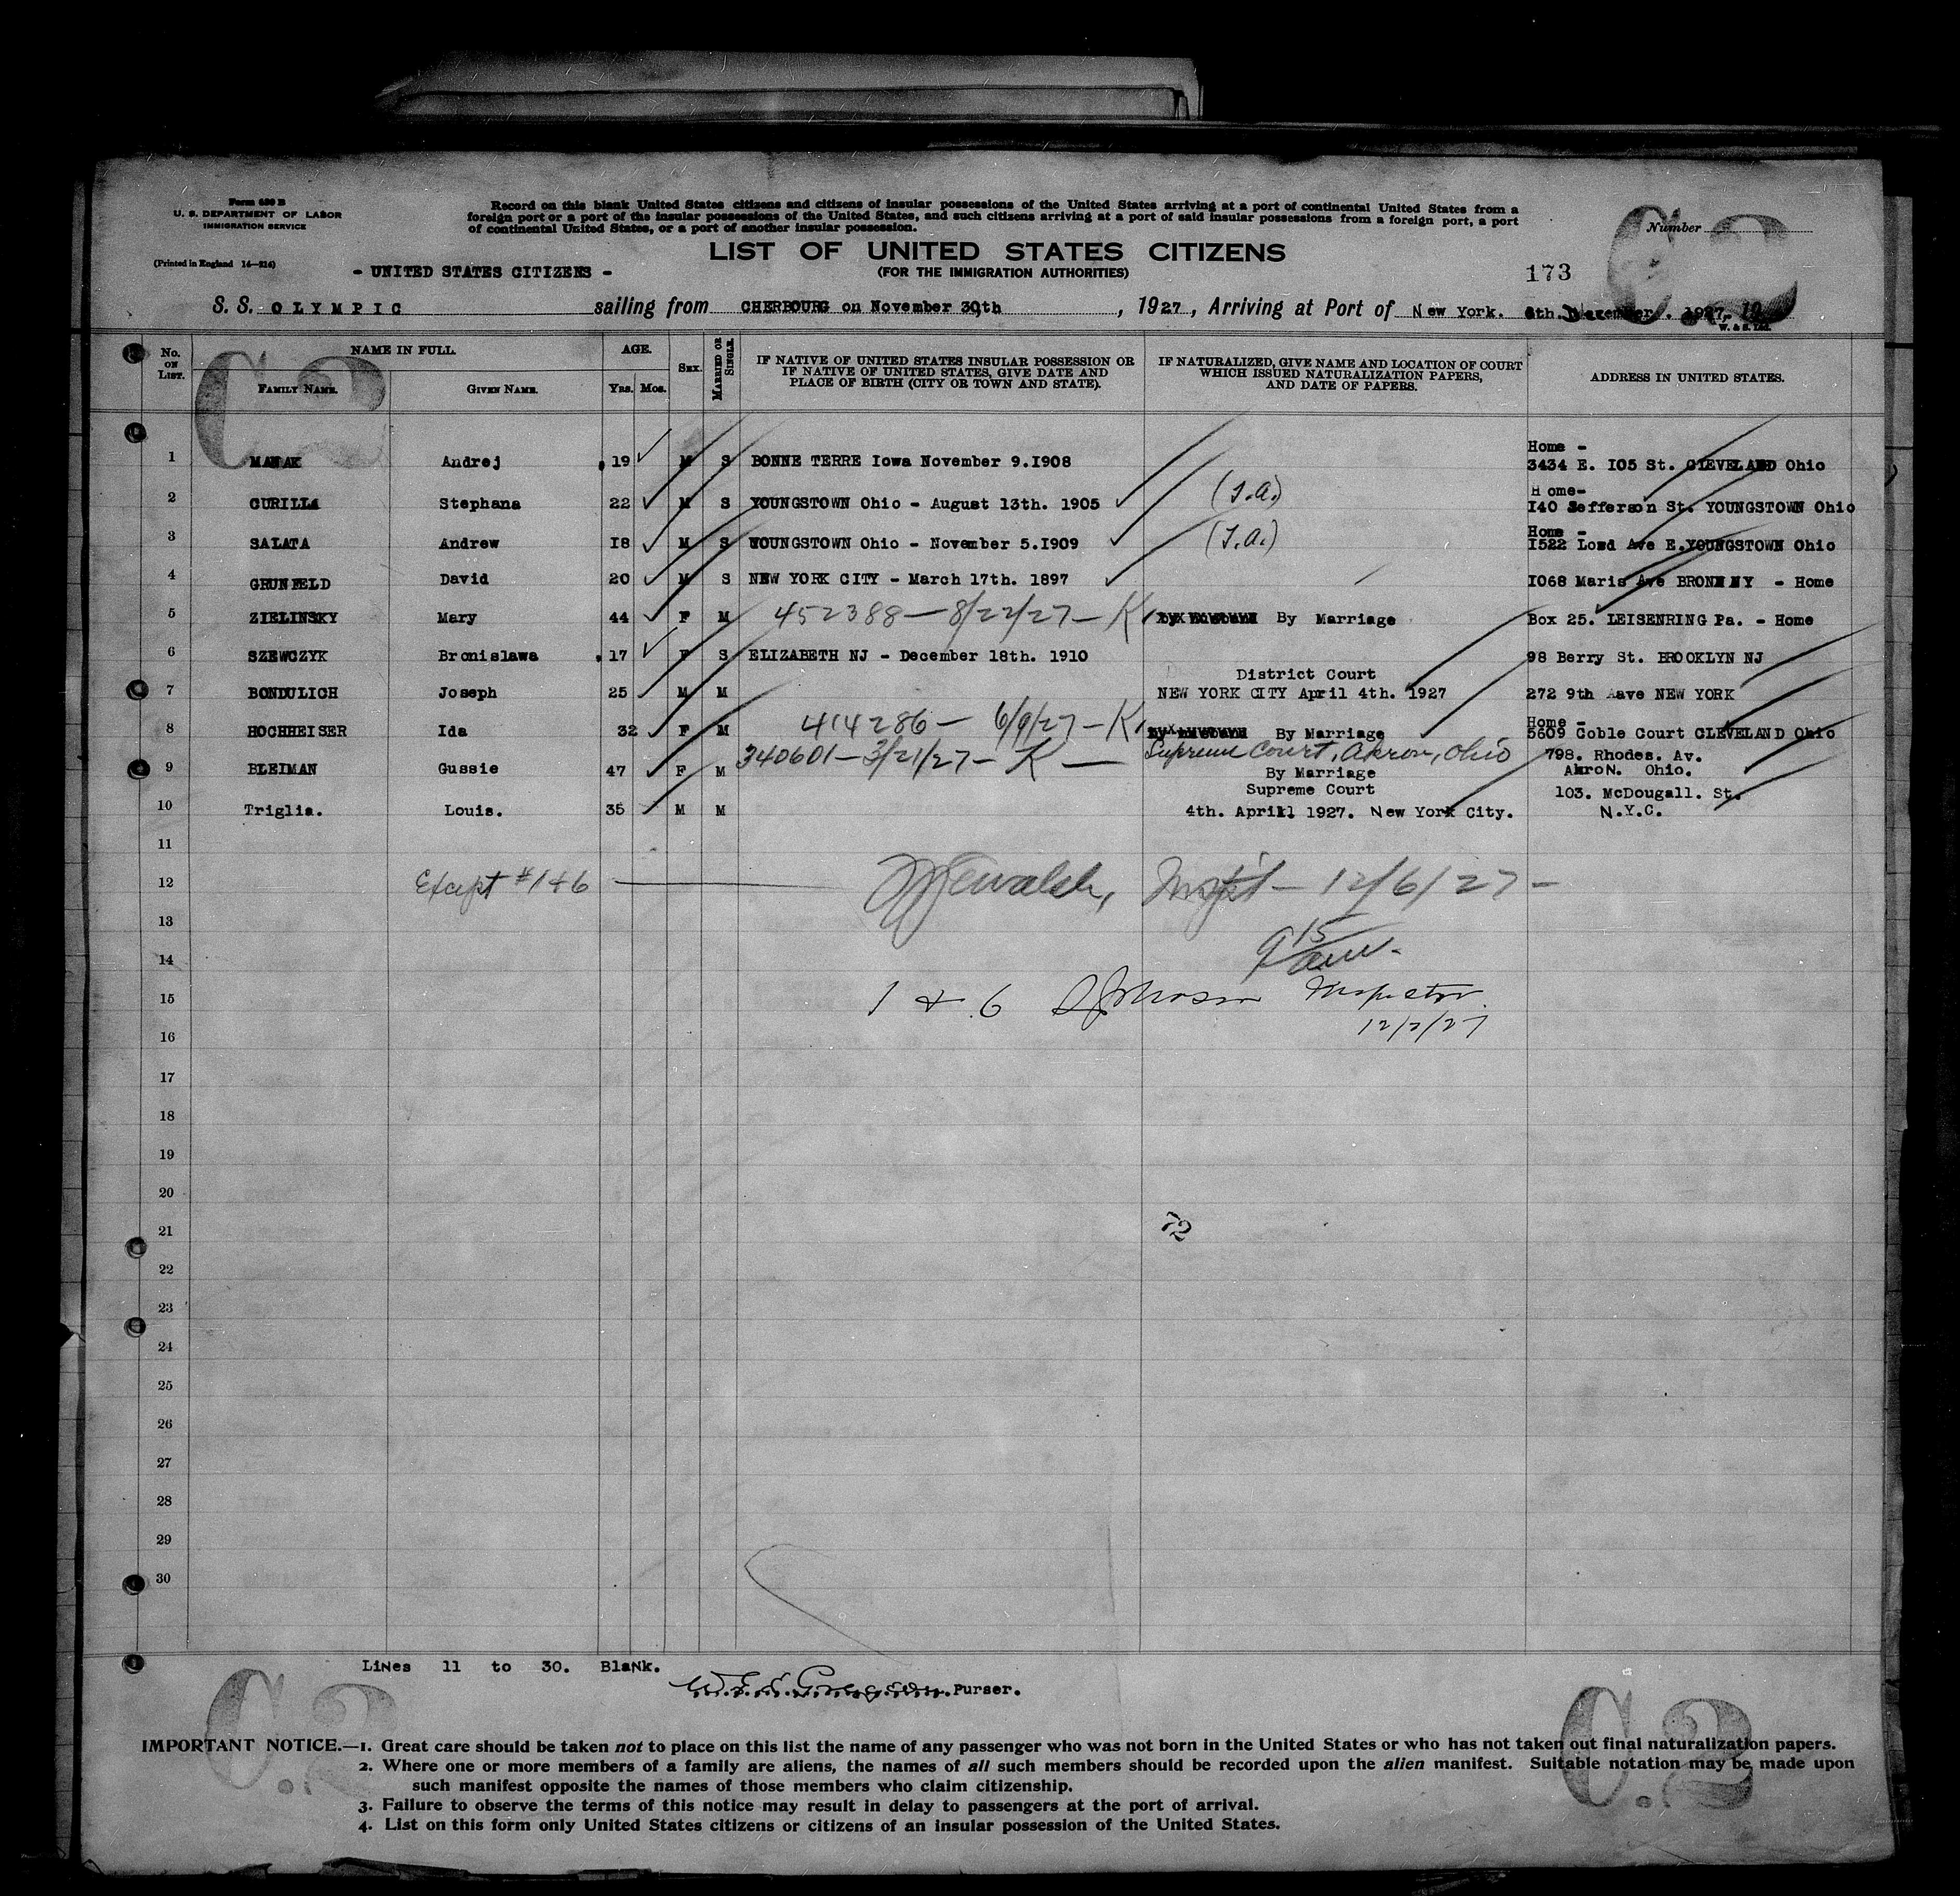 Form 630 B
U. S. DEPARTMENT OF LABOR
IMMIGRATION SERVICE
(Printed in England 14—214)
Record on this blank United States citizens and citizens of insular possessions of the United States arriving at a port of continental United States from a
foreign port or a port of the insular possessions of the United States, and such citizens arriving at a port of said insular possessions from a foreign port, a port
of continental United States, or a port of another insular possession.
LIST OF UNITED STATES CITIZENS
(FOR THE IMMIGRATION AUTHORITIES)
- UNITED STATES CITIZENS -
Number
173
S. S. OLYMPIC sailing from CHERBOURG on November 30th , 1927 , Arriving at Port of New York. 6th. December. 1927. 19
W. & S. Ltd.
No. ON LIST. NAME IN FULL. AGE. SEX. MARRIED OR SINGLE. IF NATIVE OF UNITED STATES INSULAR POSSESSION OR IF NATIVE OF UNITED STATES, GIVE DATE AND PLACE OF BIRTH (CITY OR TOWN AND STATE). IF NATURALIZED, GIVE NAME AND LOCATION OF COURT WHICH ISSUED NATURALIZATION PAPERS, AND DATE OF PAPERS. ADDRESS IN UNITED STATES.
FAMILY NAME. GIVEN NAME. Yrs. Mos.
C2
Home -
1 MANAK Andrej 19 M S BONNE TERRE Iowa November 9.I908 3434 E. I05 St. CLEVELAND Ohio
Home-
2 CURILLA Stephana 22 M S YOUNGSTOWN Ohio - August 13th. 1905 (T.A.) I40 Jefferson St. YOUNGSTOWN Ohio
Home -
3 SALATA Andrew I8 M S YOUNGSTOWN Ohio - November 5.I909 (T.A.) I522 Loud Ave E.YOUNGSTOWN Ohio
4 GRUNFELD David 20 M S NEW YORK CITY - March 17th. 1897 I068 Maris Ave BRONX NY - Home
5 ZIELINSKY Mary 44 F M 452388 — 8/22/27 — K By Marriage Box 25. LEISENRING Pa. - Home
6 SZEWCZYK Bronislawa 17 F S ELIZABETH NJ - December 18th. 1910 98 Berry St. BROOKLYN NJ
District Court
7 BONDULICH Joseph 25 M M NEW YORK CITY April 4th. 1927 272 9th Aave NEW YORK
Home -
8 HOCHHEISER Ida 32 F M 414286 — 6/9/27 — K By Marriage 5609 Coble Court CLEVELAND Ohio
Supreme Court, Akron, Ohio 798. Rhodes. Av.
9 BLEIMAN Gussie 47 F M 340601 — 3/21/27 — K — By Marriage AkroN. Ohio.
Supreme Court 103. McDougall. St.
10 Triglia. Louis. 35 M M 4th. April 1927. New York City. N.Y.C.
11
12 Except #1 & 6 Walsh, Insp't — 12/6/27 —
13
14
15 1 & 6 Johnson Inspector
12/7/27
16
17
18
19
20
21
72
22
23
24
25
26
27
28
29
30
LiNes 11 to 30. BlaNk.
Purser.
C.2 C.2
IMPORTANT NOTICE.—1. Great care should be taken not to place on this list the name of any passenger who was not born in the United States or who has not taken out final naturalization papers.
2. Where one or more members of a family are aliens, the names of all such members should be recorded upon the alien manifest. Suitable notation may be made upon
such manifest opposite the names of those members who claim citizenship.
3. Failure to observe the terms of this notice may result in delay to passengers at the port of arrival.
4. List on this form only United States citizens or citizens of an insular possession of the United States.